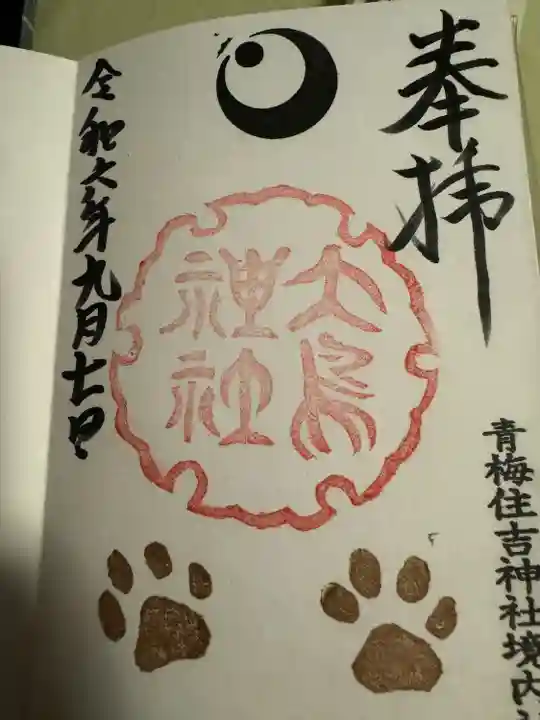 奉拝
大鳥
神社
青梅住吉神社境内
令和六年九月七日